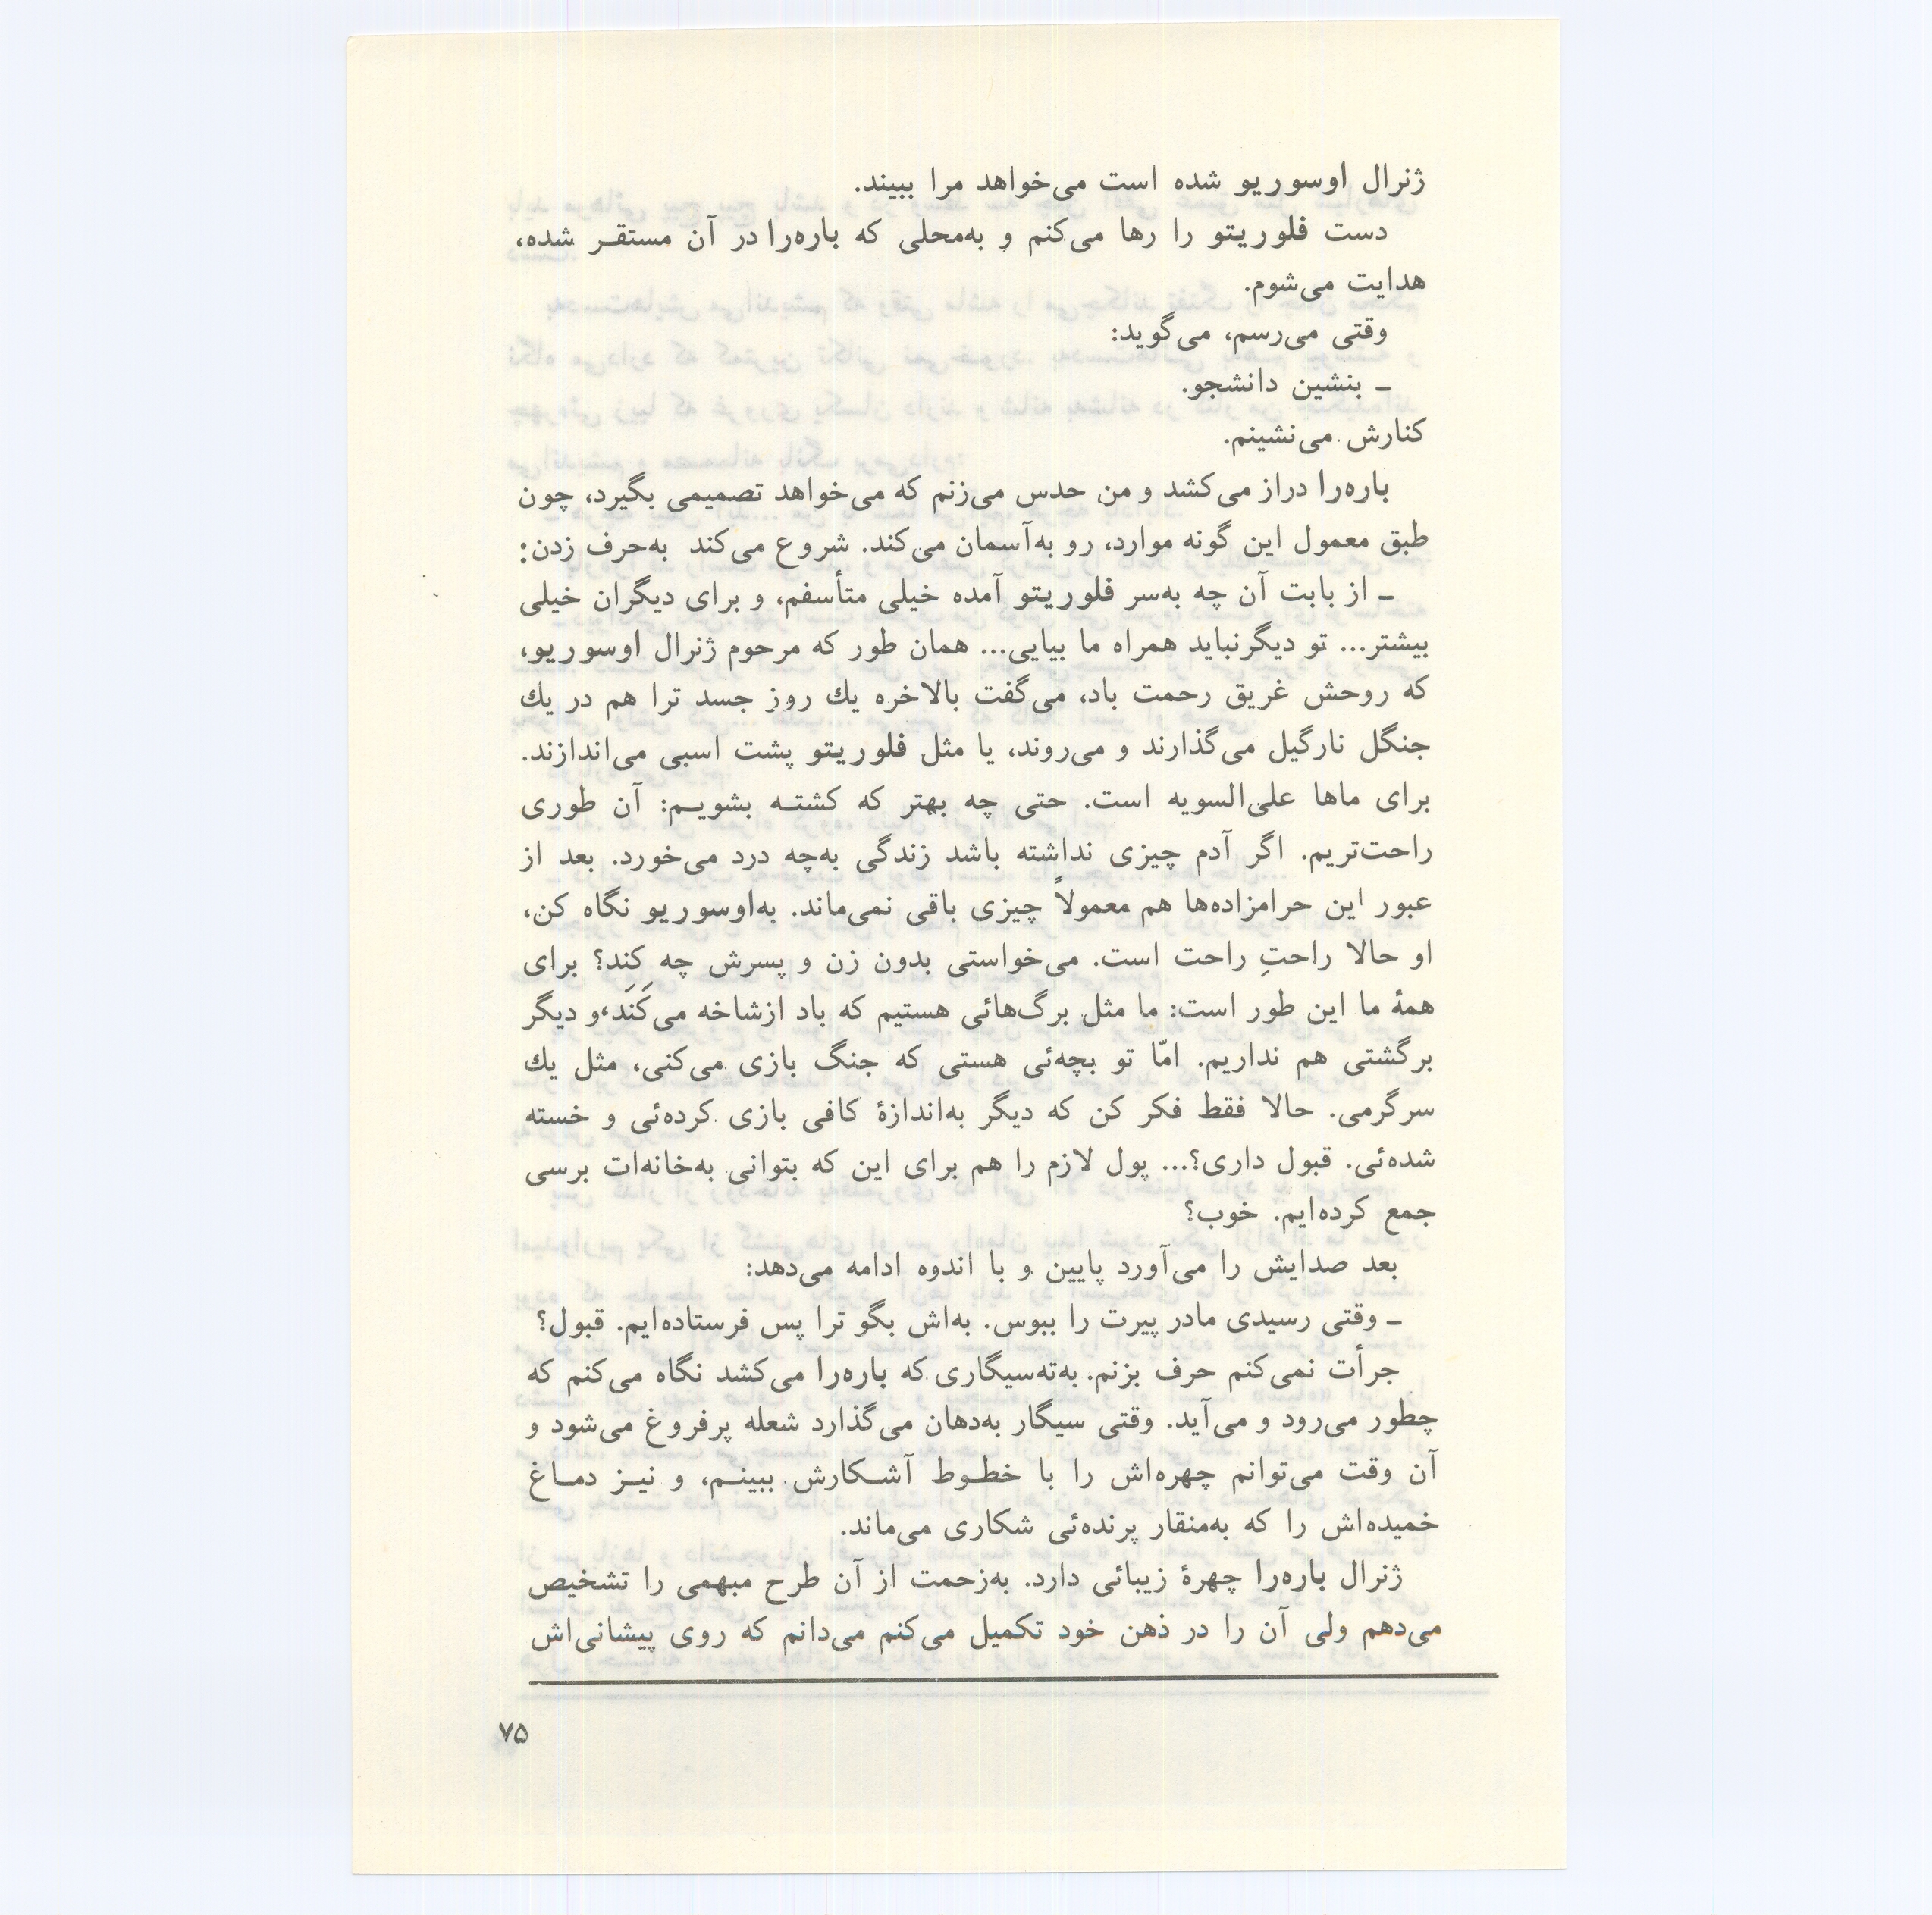 ژنرال اوسوریو شده است می‌خواهد مرا ببیند.
دست فلوریتو را رها می‌کنم و به‌محلی که باره‌را در آن مستقـر شده،
هدایت می‌شوم.
وقتی می‌رسم، می‌گوید:
ـ بنشین دانشجو.
کنارش می‌نشینم.
باره‌را دراز می‌کشد و من حدس می‌زنم که می‌خواهد تصمیمی بگیرد، چون
طبق معمول این گونه موارد، رو به‌آسمان می‌کند. شروع می‌کند به‌حرف زدن:
ـ از بابت آن چه به‌سر فلوریتو آمده خیلی متأسفم، و برای دیگران خیلی
بیشتر... تو دیگرنباید همراه ما بیایی... همان طور که مرحوم ژنرال اوسوریو،
که روحش غریق رحمت باد، می‌گفت بالاخره یك روز جسد ترا هم در یك
جنگل نارگیل می‌گذارند و می‌روند، یا مثل فلوریتو پشت اسبی می‌اندازند.
برای ماها علی‌السویه است. حتی چه بهتر که کشتـه بشویـم: آن طوری
راحت‌تریم. اگر آدم چیزی نداشته باشد زندگی به‌چه درد می‌خورد. بعد از
عبور این حرامزاده‌ها هم معمولاً چیزی باقی نمی‌ماند. به‌اوسوریو نگاه کن،
او حالا راحتِ راحت است. می‌خواستی بدون زن و پسرش چه کند؟ برای
همهٔ ما این طور است: ما مثل برگ‌هائی هستیم که باد ازشاخه می‌کَنَد، و دیگر
برگشتی هم نداریم. امّا تو بچه‌ئی هستی که جنگ بازی می‌کنی، مثل یك
سرگرمی. حالا فقط فکر کن که دیگر به‌اندازهٔ کافی بازی کرده‌ئی و خسته
شده‌ئی. قبول داری؟... پول لازم را هم برای این که بتوانی به‌خانه‌ات برسی
جمع کرده‌ایم. خوب؟
بعد صدایش را می‌آورد پایین و با اندوه ادامه می‌دهد:
ـ وقتی رسیدی مادر پیرت را ببوس. به‌اش بگو ترا پس فرستاده‌ایم. قبول؟
جرأت نمی‌کنم حرف بزنم. به‌ته‌سیگاری که باره‌را می‌کشد نگاه می‌کنم که
چطور می‌رود و می‌آید. وقتی سیگار به‌دهان می‌گذارد شعله پرفروغ می‌شود و
آن وقت می‌توانم چهره‌اش را با خطـوط آشـکارش ببینـم، و نیـز دمـاغ
خمیده‌اش را که به‌منقار پرنده‌ئی شکاری می‌ماند.
ژنرال باره‌را چهرهٔ زیبائی دارد. به‌زحمت از آن طرح مبهمی را تشخیص
می‌دهم ولی آن را در ذهن خود تکمیل می‌کنم می‌دانم که روی پیشانی‌اش
۷۵